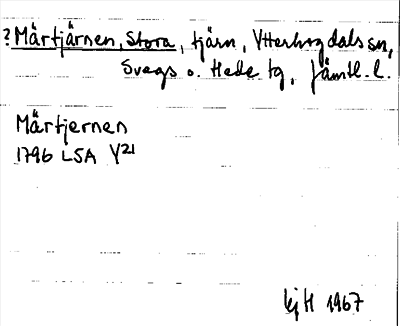 ? Märtjärnen, Stora, tjärn, Ytterhogdals sn,
Svegs o. Hede tg, Jämtl. l.
Märtjernen
1796 LSA Y21
kjH 1967